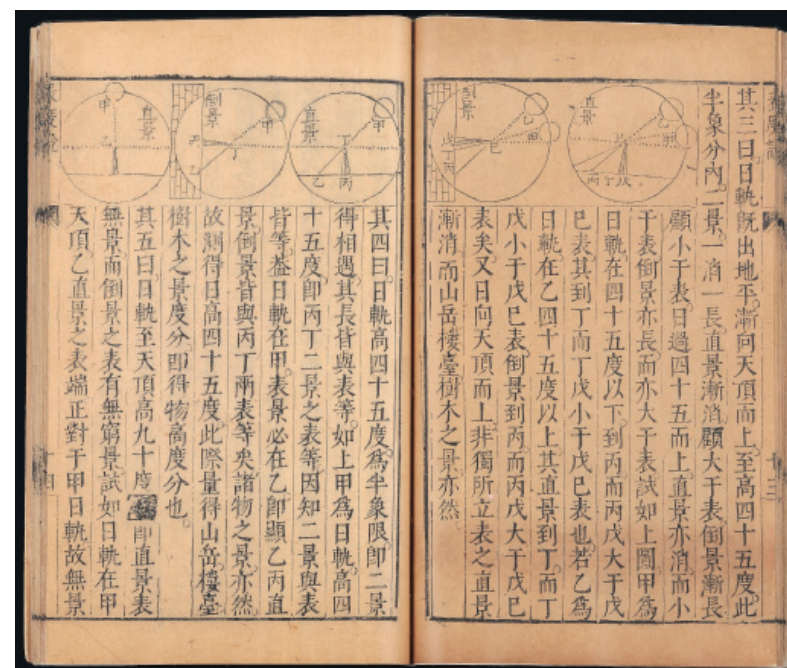 其三曰。日軌旣出地平。漸向天頂而上。至高四十五度。此
半象分內。二景一消一長。直景漸消。顧大于表。倒景漸長
直景
乙
甲
巳
丙丁戊
倒景
乙
甲
巳
戊
丁
丙
顧小于表。日過四十五而上。直景亦消。而小
于表。倒景亦長。而亦大于表。試如上圖。甲爲
日軌。在四十五度以下。到丙。而丙戊大于戊
巳表。其到丁。而丁戊小于戊巳表也。若乙爲
日軌。在乙四十五度以上。其直景到丁。而丁
戊小于戊巳表。倒景到丙。而丙戊大于戊巳
表矣。又日向天頂而上。非獨所立表之直景
漸消。而山岳樓臺樹木之景亦然
十三
直景
甲
丁
乙
丙
倒景
甲
丙
丁
乙
直景
甲
乙
其四曰。日軌高四十五度。爲半象限。卽二景
得相遇。其長皆與表等。如上甲爲日軌。高四
十五度。卽丙丁二景之表等。因知二景與表
皆等。葢日軌在甲。表景必在乙。卽顯乙丙直
景。倒景皆與丙丁兩表等矣。諸物之景亦然
故測得日高四十五度。此際量得山岳樓臺
樹木之景度分。卽得物高度分也。
其五曰。日軌至天頂高九十度。卽直景表
無景。而倒景之表有無窮景。試如日軌在甲
天頂。乙直景之表。端正對于甲日軌。故無景
十四